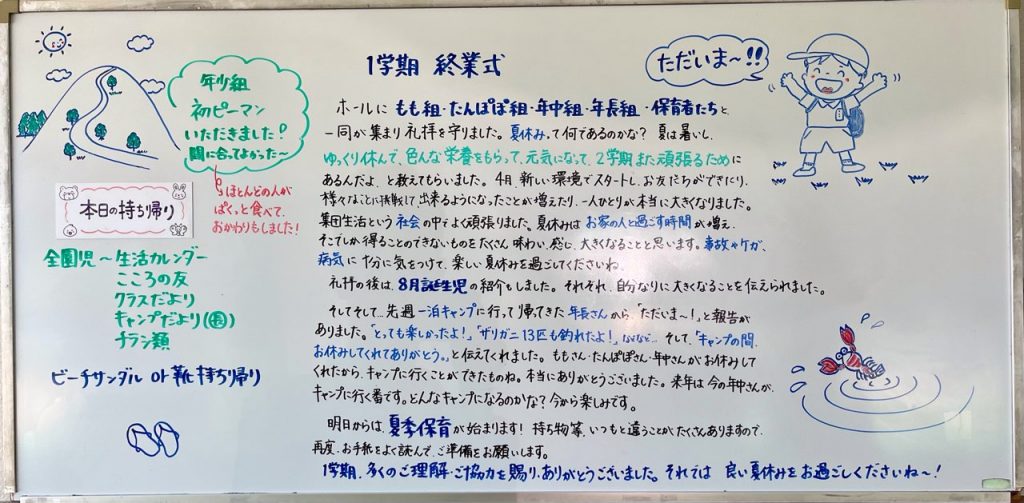 年少組
初ピーマン
いただきました!
間に合ってよかった〜
ほとんどの人が
ぱくっと食べて、
おかわりもしました!
本日の持ち帰り
全園児〜生活カレンダー
こころの友
クラスだより
キャンプだより(園)
チラシ類
ビーチサンダル or 靴 持ち帰り
1学期 終業式
ただいま〜!!
ホールに もも組・たんぽぽ組・年中組・年長組・保育者たちと
一同が集まり礼拝を守りました。夏休みって何であるのかな? 夏は暑いし、
ゆっくり休んで、色んな栄養をもらって、元気になって、2学期また頑張るために
あるんだよ、と教えてもらいました。4月、新しい環境でスタートし、お友だちができたり、
様々なことに挑戦して、出来るようになったことが増えたり、一人ひとりが本当に大きくなりました。
集団生活という社会の中でよく頑張りました。夏休みはお家の人と過ごす時間が増え、
そこでしか得ることのできないものをたくさん味わい、感じ、大きくなることと思います。事故やケガ、
病気に十分に気をつけて、楽しい夏休みを過ごしてくださいね。
礼拝の後は、8月誕生児の紹介もしました。それぞれ、自分なりに大きくなることを伝えられました。
そしてそして…先週一泊キャンプに行って帰ってきた年長さんから、「ただいま〜!」と報告が
ありました。「とっても楽しかったよ!」「ザリガニ13匹も釣れたよ!」などなど… そして、「キャンプの間、
お休みしてくれてありがとう。」と伝えてくれました。ももさん・たんぽぽさん・年中さんがお休みして
くれたから、キャンプに行くことができたものね。本当にありがとうございました。来年は今の年中さんが、
キャンプに行く番です。どんなキャンプになるのかな?今から楽しみです。
明日からは、夏季保育が始まります! 持ち物等、いつもと違うことがたくさんありますので、
再度、お手紙をよく読んで、ご準備をお願いします。
1学期、多くのご理解・ご協力を賜り、ありがとうございました。それでは 良い夏休みをお過ごしくださいね〜!